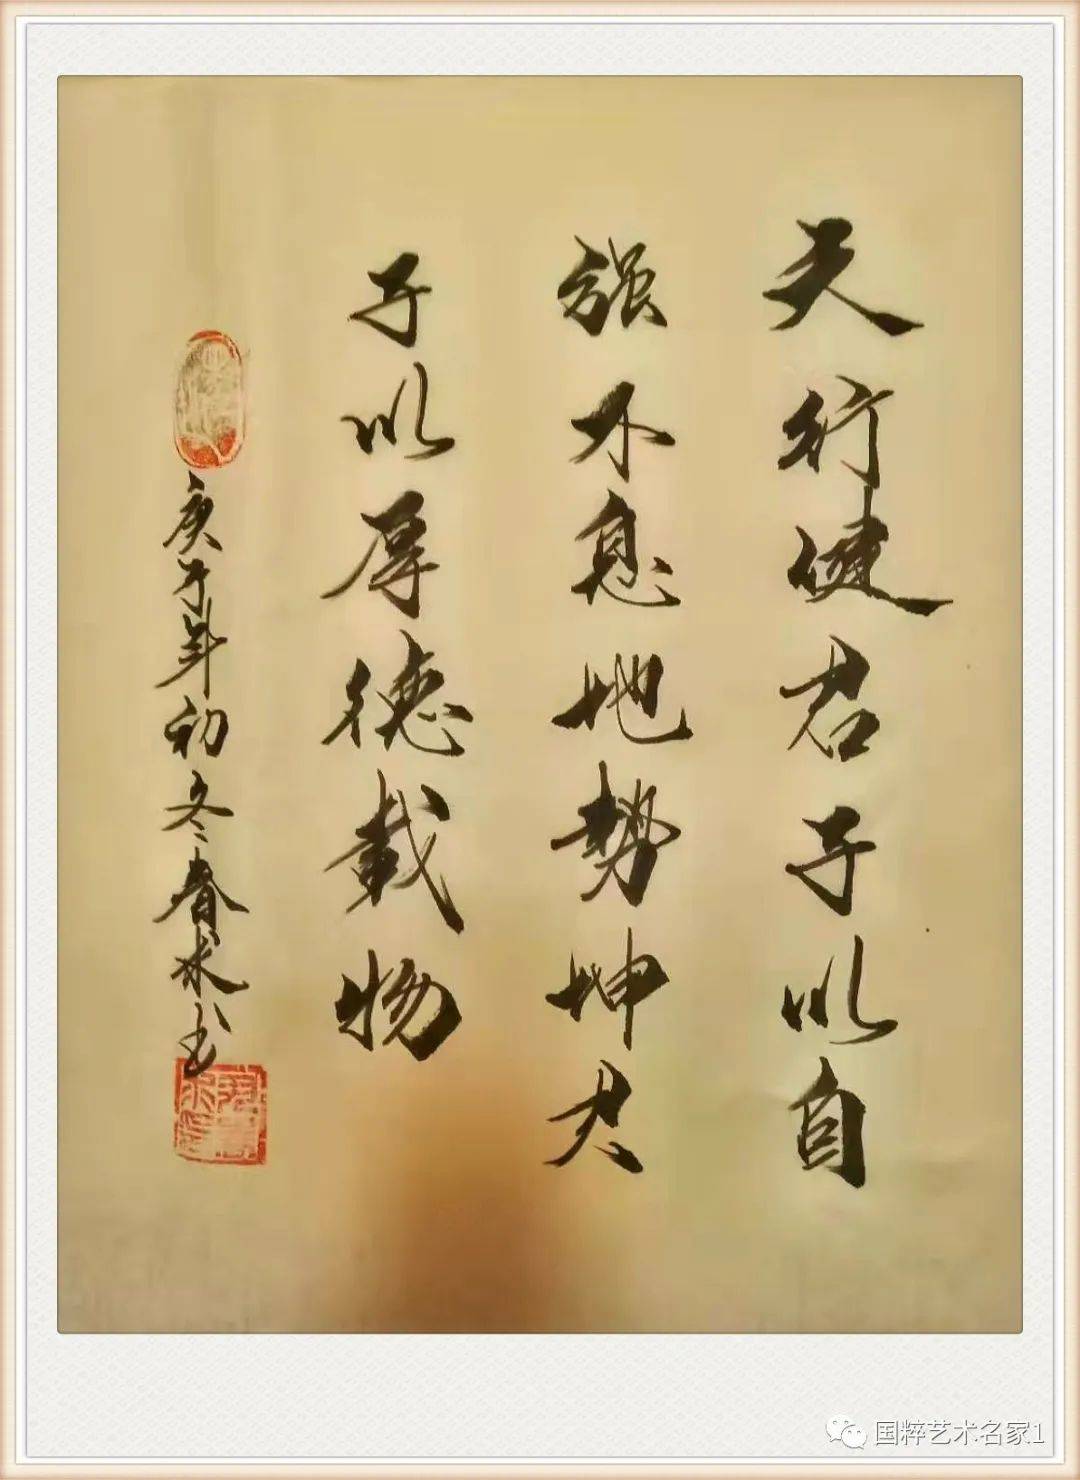 天行健君子以自
强不息地势坤君
子以厚德载物
庚子年初冬春水书
国粹艺术名家1